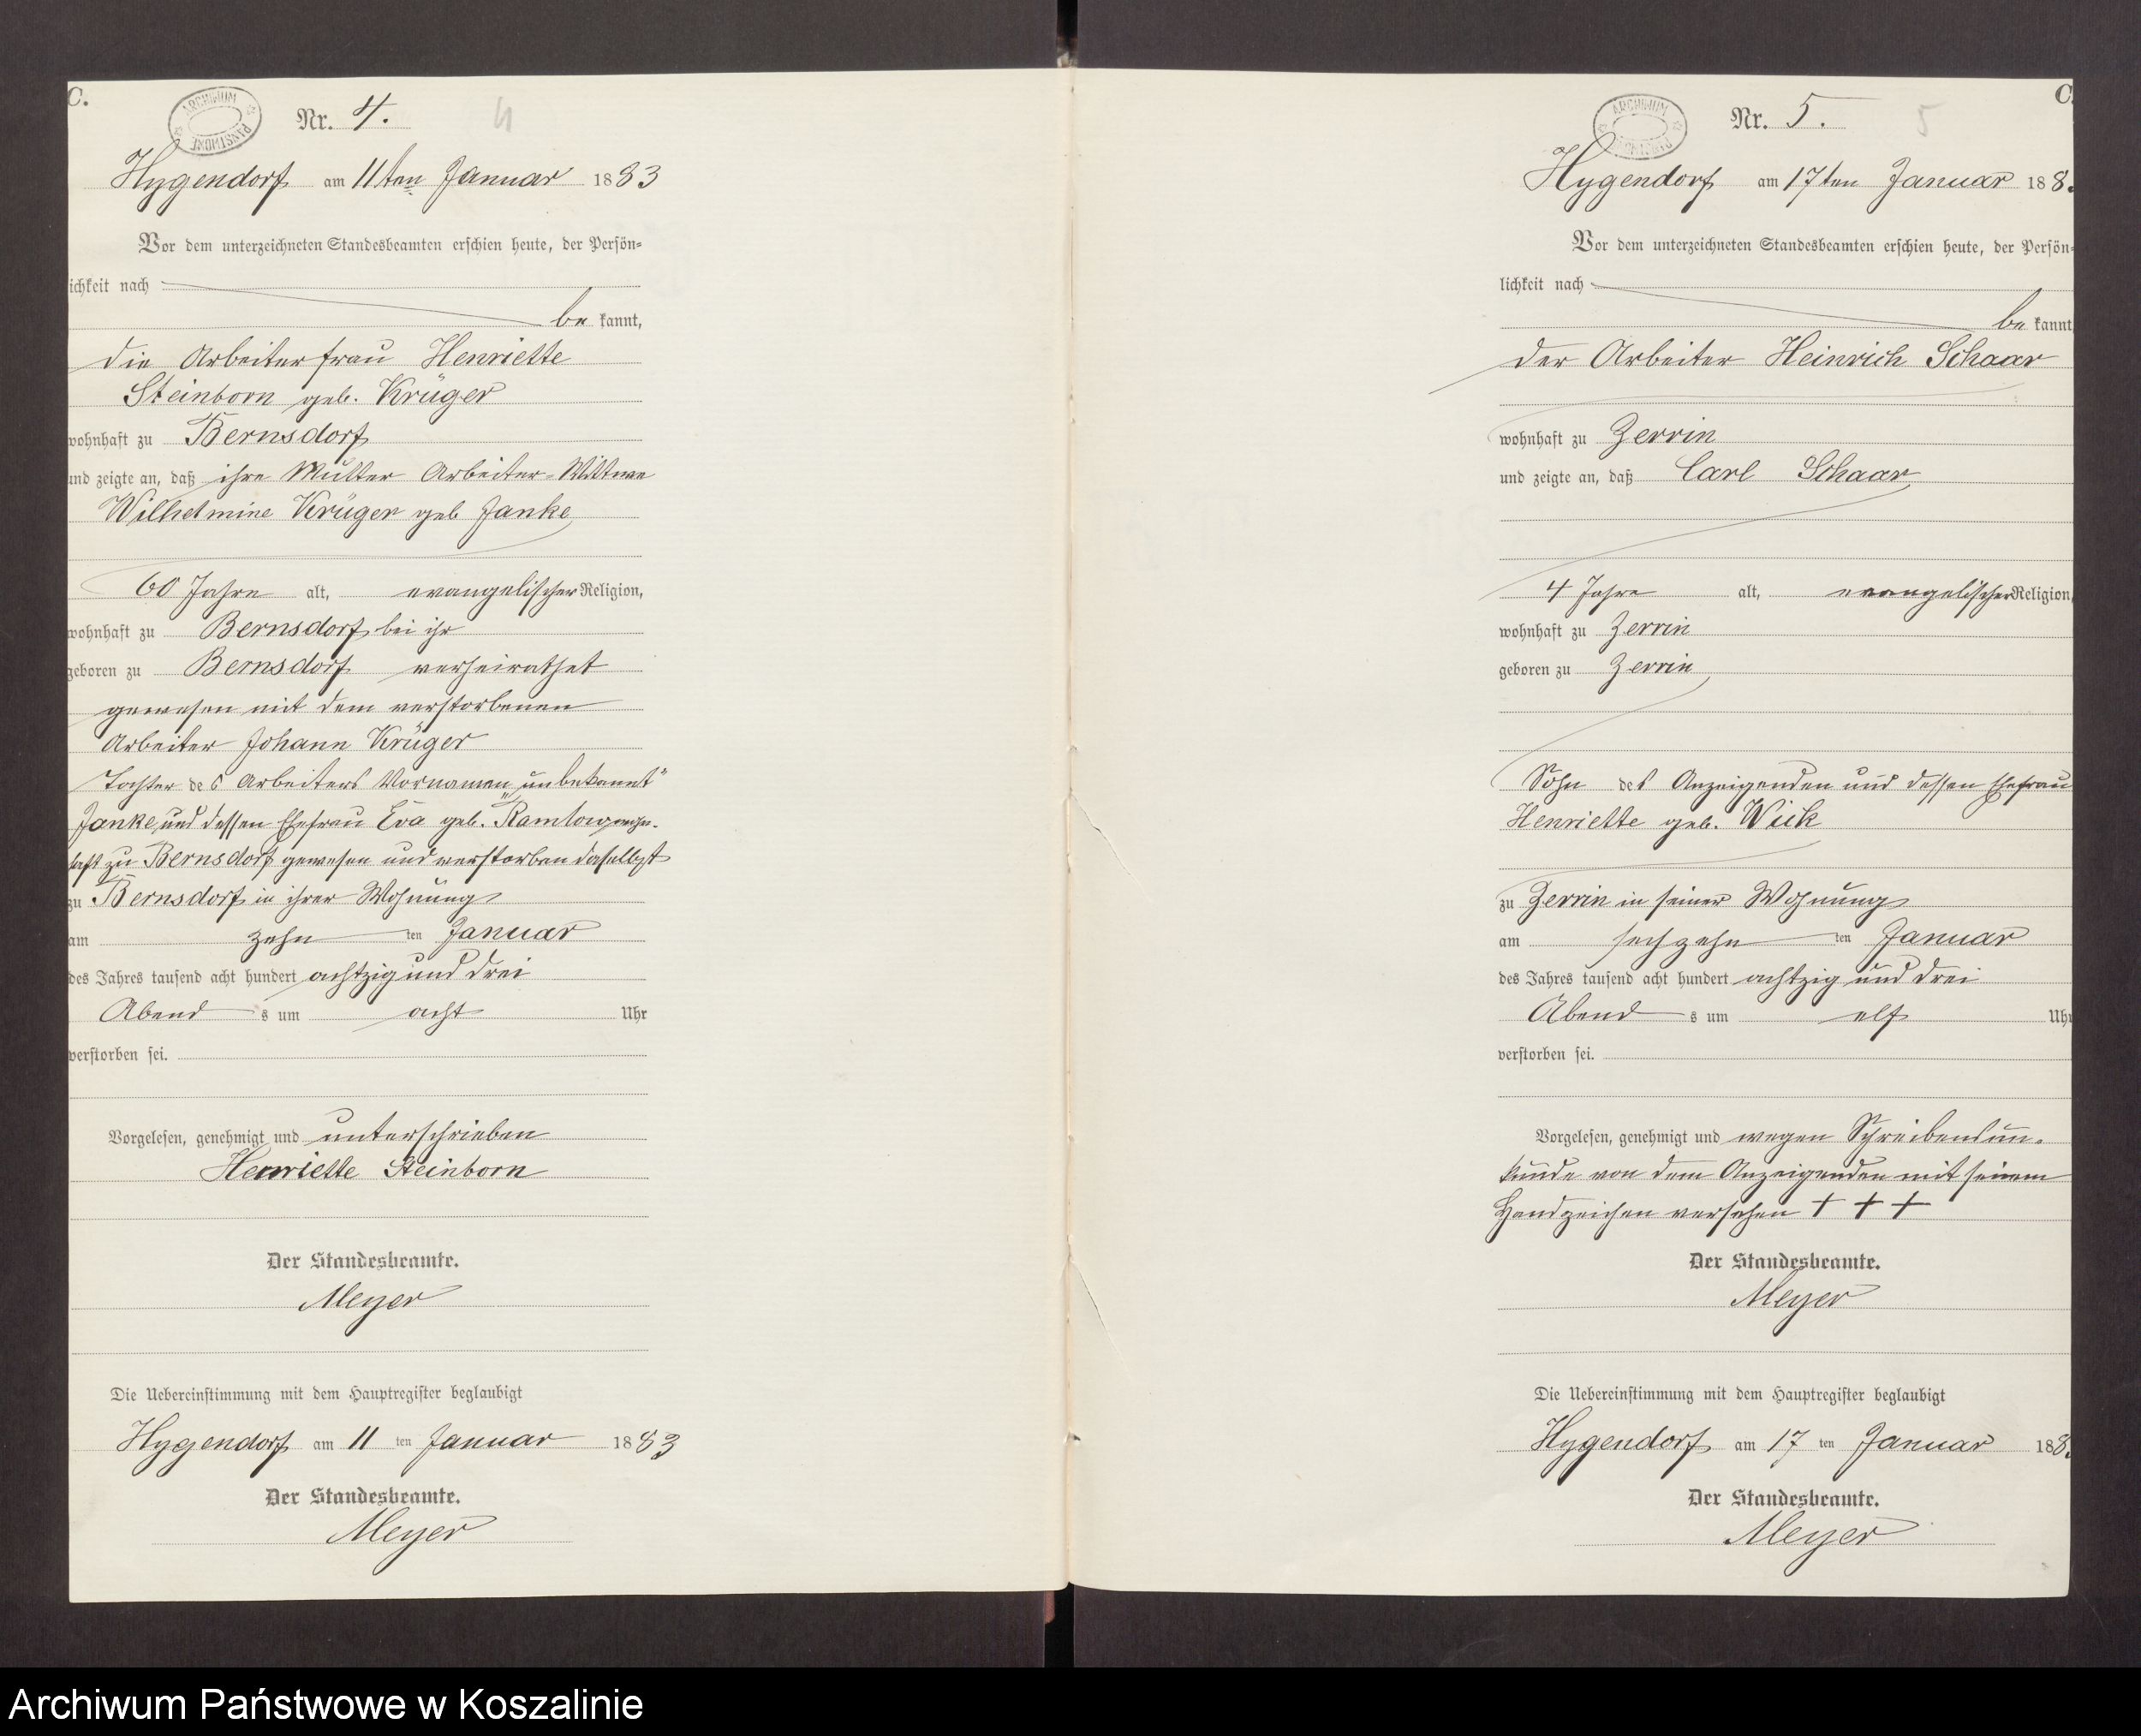 C.
ARCHIWUM PAŃSTWOWE
Nr. 4.
4
Hygendorf am 11ten Januar 1883
Vor dem unterzeichneten Standesbeamten erschien heute, der Persön-
lichkeit nach
be kannt,
die Arbeiterfrau Henriette
Steinborn geb. Krüger
wohnhaft zu Bernsdorf
und zeigte an, daß ihre Mutter Arbeiter-Wittwe
Wilhelmine Krüger geb Janke
60 Jahre alt, evangelischer Religion,
wohnhaft zu Bernsdorf bei ihr
geboren zu Bernsdorf verheirathet
gewesen mit dem verstorbenen
Arbeiter Johann Krüger
Tochter des Arbeiters Vornamen „unbekannt"
Janke und dessen Ehefrau Eva geb. Ramlow, wohn-
haft zu Bernsdorf gewesen und verstorben daselbst
zu Bernsdorf in ihrer Wohnung
am zehn ten Januar
des Jahres tausend acht hundert achtzig und drei
Abend s um acht Uhr
verstorben sei.
Vorgelesen, genehmigt und unterschrieben
Henriette Steinborn
Der Standesbeamte.
Meyer
Die Uebereinstimmung mit dem Hauptregister beglaubigt
Hygendorf am 11 ten Januar 1883
Der Standesbeamte.
Meyer
C.
ARCHIWUM PAŃSTWOWE
Nr. 5.
5
Hygendorf am 17ten Januar 188
Vor dem unterzeichneten Standesbeamten erschien heute, der Persön-
lichkeit nach
be kannt,
der Arbeiter Heinrich Schaar
wohnhaft zu Zerrin
und zeigte an, daß Carl Schaar
4 Jahre alt, evangelischer Religion,
wohnhaft zu Zerrin
geboren zu Zerrin
Sohn des Anzeigenden und dessen Ehefrau
Henriette geb. Wick
zu Zerrin in seiner Wohnung
am sechzehn ten Januar
des Jahres tausend acht hundert achtzig und drei
Abend s um elf Uhr
verstorben sei.
Vorgelesen, genehmigt und wegen Schreibensun-
kunde von dem Anzeigenden mit seinem
Handzeichen versehen + + +
Der Standesbeamte.
Meyer
Die Uebereinstimmung mit dem Hauptregister beglaubigt
Hygendorf am 17 ten Januar 188
Der Standesbeamte.
Meyer
Archiwum Państwowe w Koszalinie